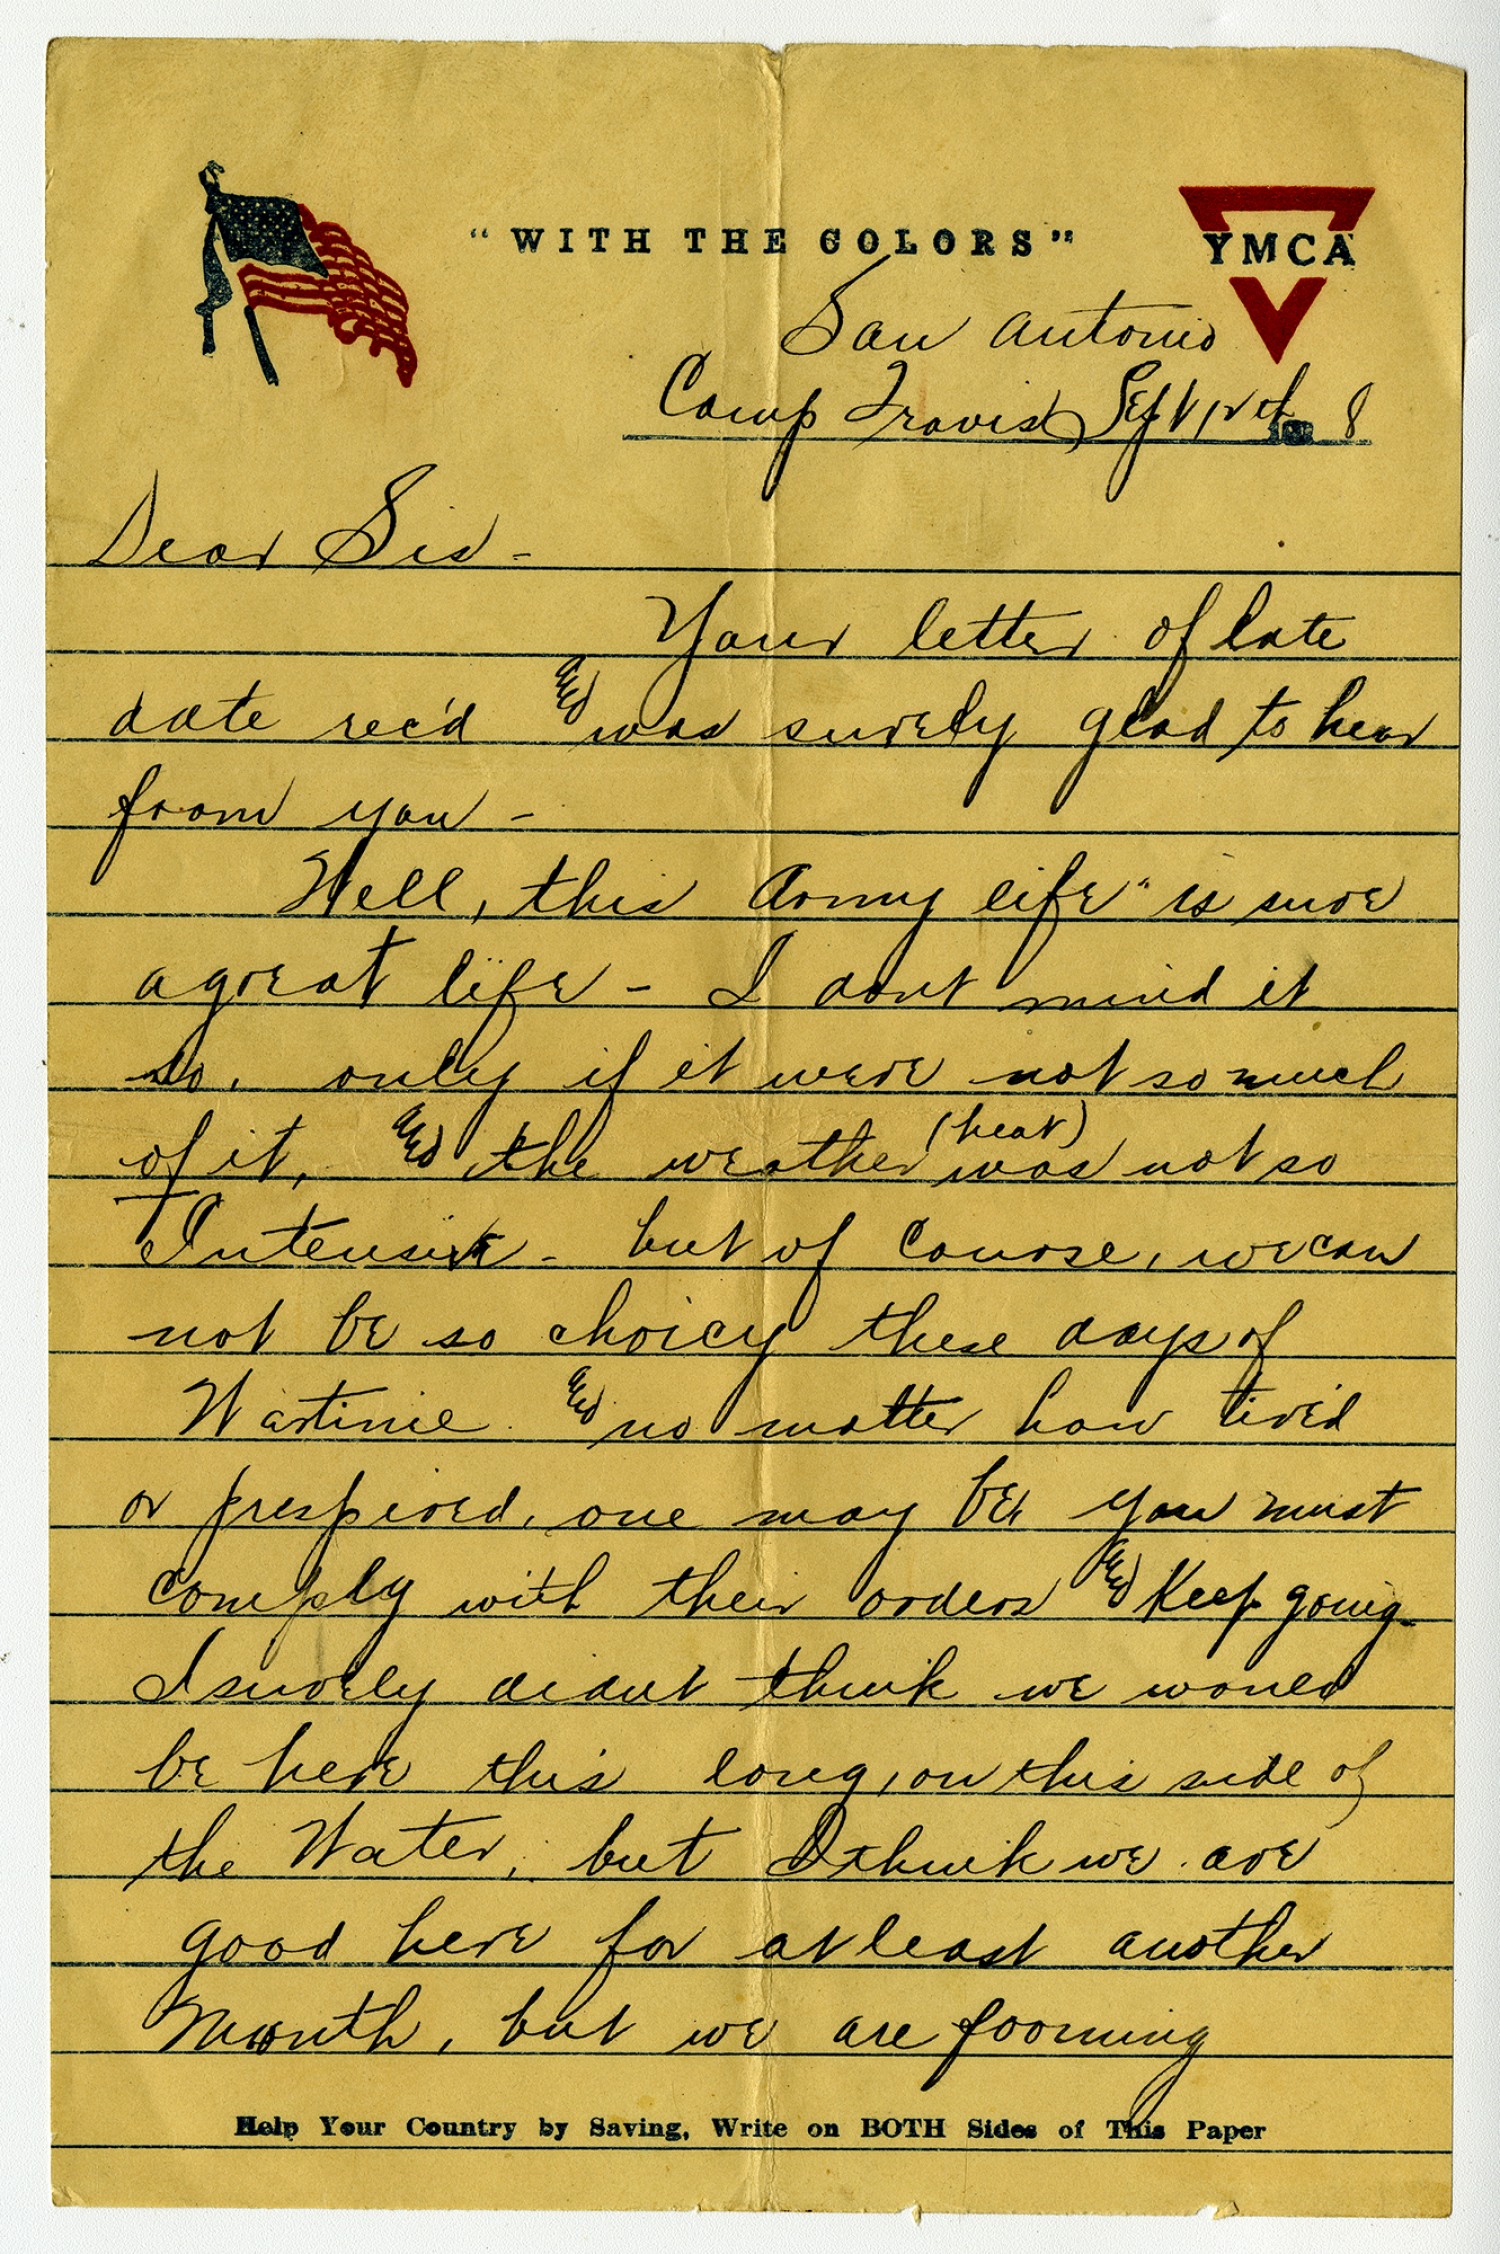 "WITH THE COLORS"
YMCA
San Antonio
Camp Travis Sept 12th 8
Dear Sis -
Your letter of late
date rec'd and was surely glad to hear
from you -
Well, this Army life" is sure
a great life - I dont mind it
so. only if it were not so much
of it, and the weather (heat) was not so
Intensive - but of course, we can
not be so choicy these days of
Wartime and no matter how tired
or prespired, one may be, you must
comply with their orders and Keep going -
I surely didnt think we would
be here this long, on this side of
the Water, but I think we are
good here for at least another
Month, but we are forming
Help Your Country by Saving, Write on BOTH Sides of This Paper